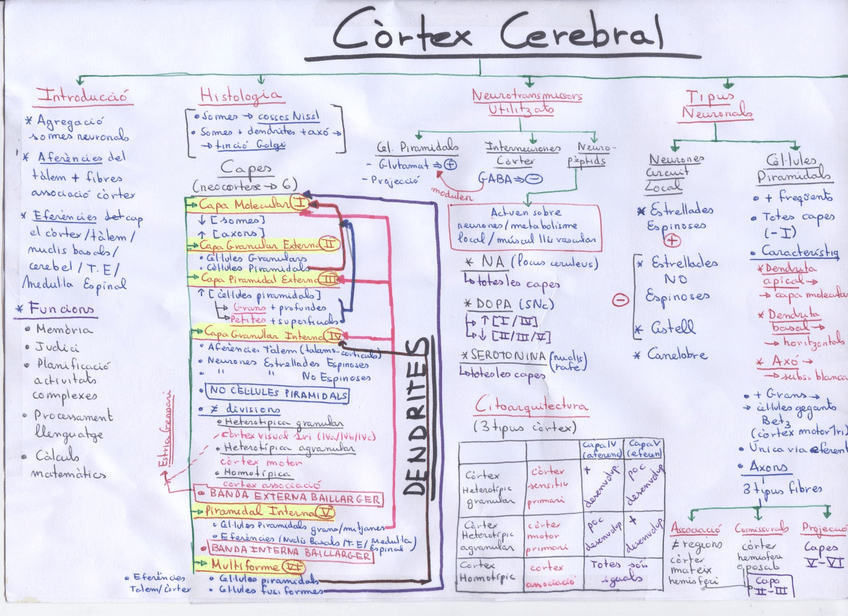 Còrtex Cerebral
Introducció
* Agregació
somes neuronals
* Aferències del
tàlem + fibres
associació còrtex
* Eferències del cap
el còrtex/tàlem/
nuclis basals/
cerebel/T.E/
Medul·la Espinal
* Funcions
• Memòria
• Judici
• Planificació
activitats
complexes
• Processament
llenguatge
• Càlculs
matemàtics
Histologia
• Somes → cossos Nissl
• Somes + dendrites + axó →
→ tinció Golgi
Capes
(neocórtex → 6)
Capa Molecular I
↓ [somes]
↑ [axons]
Capa Granular Externa II
• Cèl·lules Granulars
• Cèl·lules Piramidals
Capa Piramidal Externa III
↑ [cèl·lules piramidals]
→ Grans + profundes
→ Petites + superficials
Capa Granular Interna IV
• Aferències Tàlem (talams-corticals)
• Neurones Estrellades Espinoses
" " No Espinoses
• NO CÈL·LULES PIRAMIDALS
• ≠ divisions
• Heterotípica granular
Còrtex visual 1ri (IVa/IVb/IVc)
• Heterotípica agranular
còrtex motor
• Homotípica
còrtex associació
Estria Gennari
• BANDA EXTERNA BAILLARGER
Piramidal Interna V
• Cèl·lules Piramidals grans/mitjanes
• Eferències (Nuclis Basals/T.E/Medul·la Espinal)
• BANDA INTERNA BAILLARGER
Multiforme VI
• Eferències
Tàlem/còrtex
• Cèl·lules piramidals
• Cèl·lules fusiformes
DENDRITES
Neurotransmissors
Utilitzats
Cèl. Piramidals
- Glutamat ⇒ +
- Projecció
Interneurones
Còrtex
GABA ⇒ -
modulen
Neuro-
pèptids
Actuen sobre
neurones/metabolisme
local/múscul llis vascular
* NA (locus ceruleus)
↳ totes les capes
* DOPA (SNc)
↳ ↑ [I/IV]
↳ ↓ [II/III/V]
* SEROTONINA (nuclis rafe)
↳ totes les capes
Citoarquitectura
(3 tipus còrtex)
Capa IV (aferent) Capa V (eferent)
Còrtex Heterotípic granular
còrtex sensitiu primari
+ desenvolup
poc desenvolup
Còrtex Heterotípic agranular
còrtex motor primari
poc desenvolup
+ desenvolup
Còrtex Homotípic
còrtex associació
Totes són iguals
Tipus
Neuronals
Neurones
Circuit
Local
* Estrellades
Espinoses
+
* Estrellades
NO
Espinoses
-
* Castell
* Canelobre
Cèl·lules
Piramidals
• + freqüents
• Totes capes
(- I)
• Característiq
* Dendrita
apical →
→ capa molecular
* Dendrita
basal →
→ horitzontals
* Axó →
→ subs. blanca
• + Grans →
→ cèl·lules gegants
Betz
(còrtex motor 1ri)
• Única via eferent
• Axons
3 tipus fibres
Associació
≠ regions
còrtex
mateix
hemisferi
Comissurals
còrtex
hemisferi
oposat
Capa
II-III
Projecció
Capes
V-VI